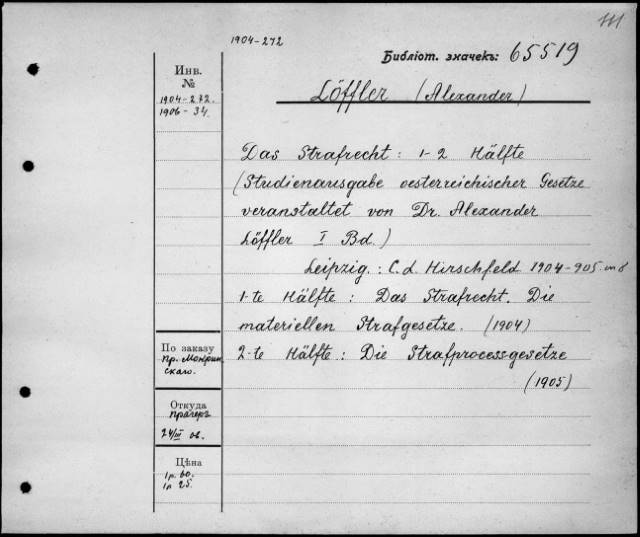 1904-272
Библiот. значекъ: 65519
Инв.
№
1904-272.
1906-34.
Löffler (Alexander)
Das Strafrecht: 1-2 Hälfte
(Studienausgabe oesterreichischer Gesetze
veranstaltet von Dr. Alexander
Löffler I Bd.)
Leipzig.: C. L. Hirschfeld 1904-905. in 8
1-te Hälfte: Das Strafrecht. Die
materiellen Strafgesetze. (1904)
2-te Hälfte.: Die Strafprocessgesetze
(1905)
По заказу
пр. Мокрин
скаго.
Откуда
Прагеръ
24/III 06.
Цѣна
1р. 60.
1р 25.